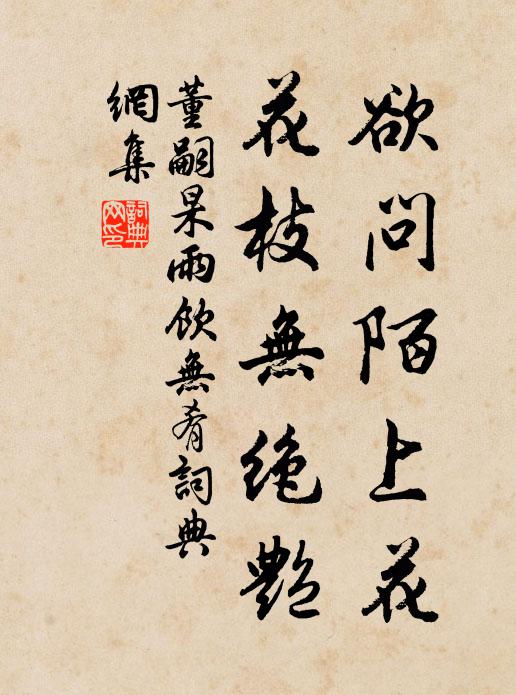 欲問陌上花
花枝無絶艷
董嗣杲雨飲無肴詞典
網集
詞典
網印